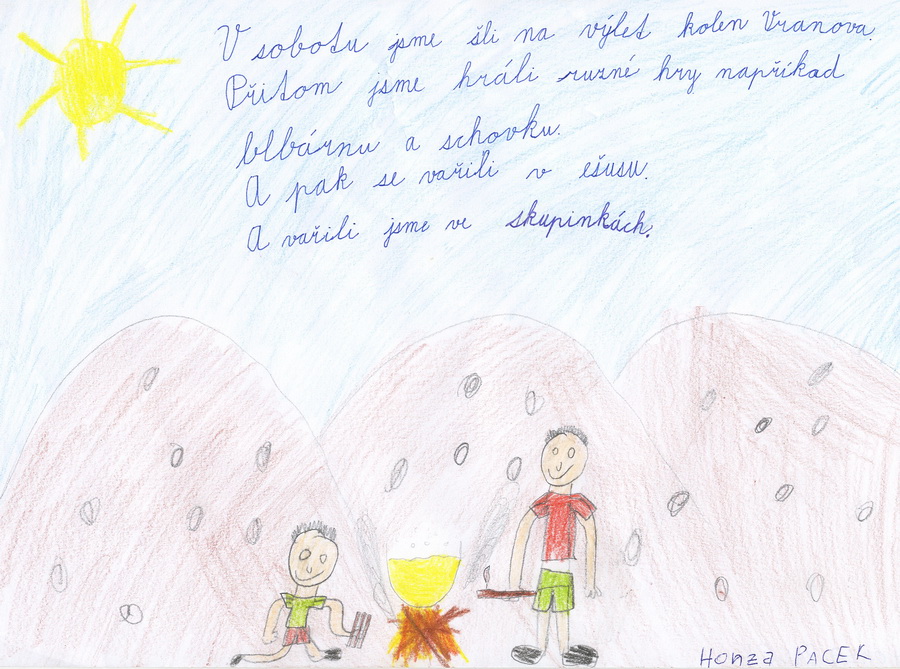 V sobotu jsme šli na výlet kolen Vranova.
Přitom jsme hráli ruzné hry napříkad
blbárnu a schovku.
A pak se vařili v ešusu.
A vařili jsme ve skupinkách.
Honza PACEK